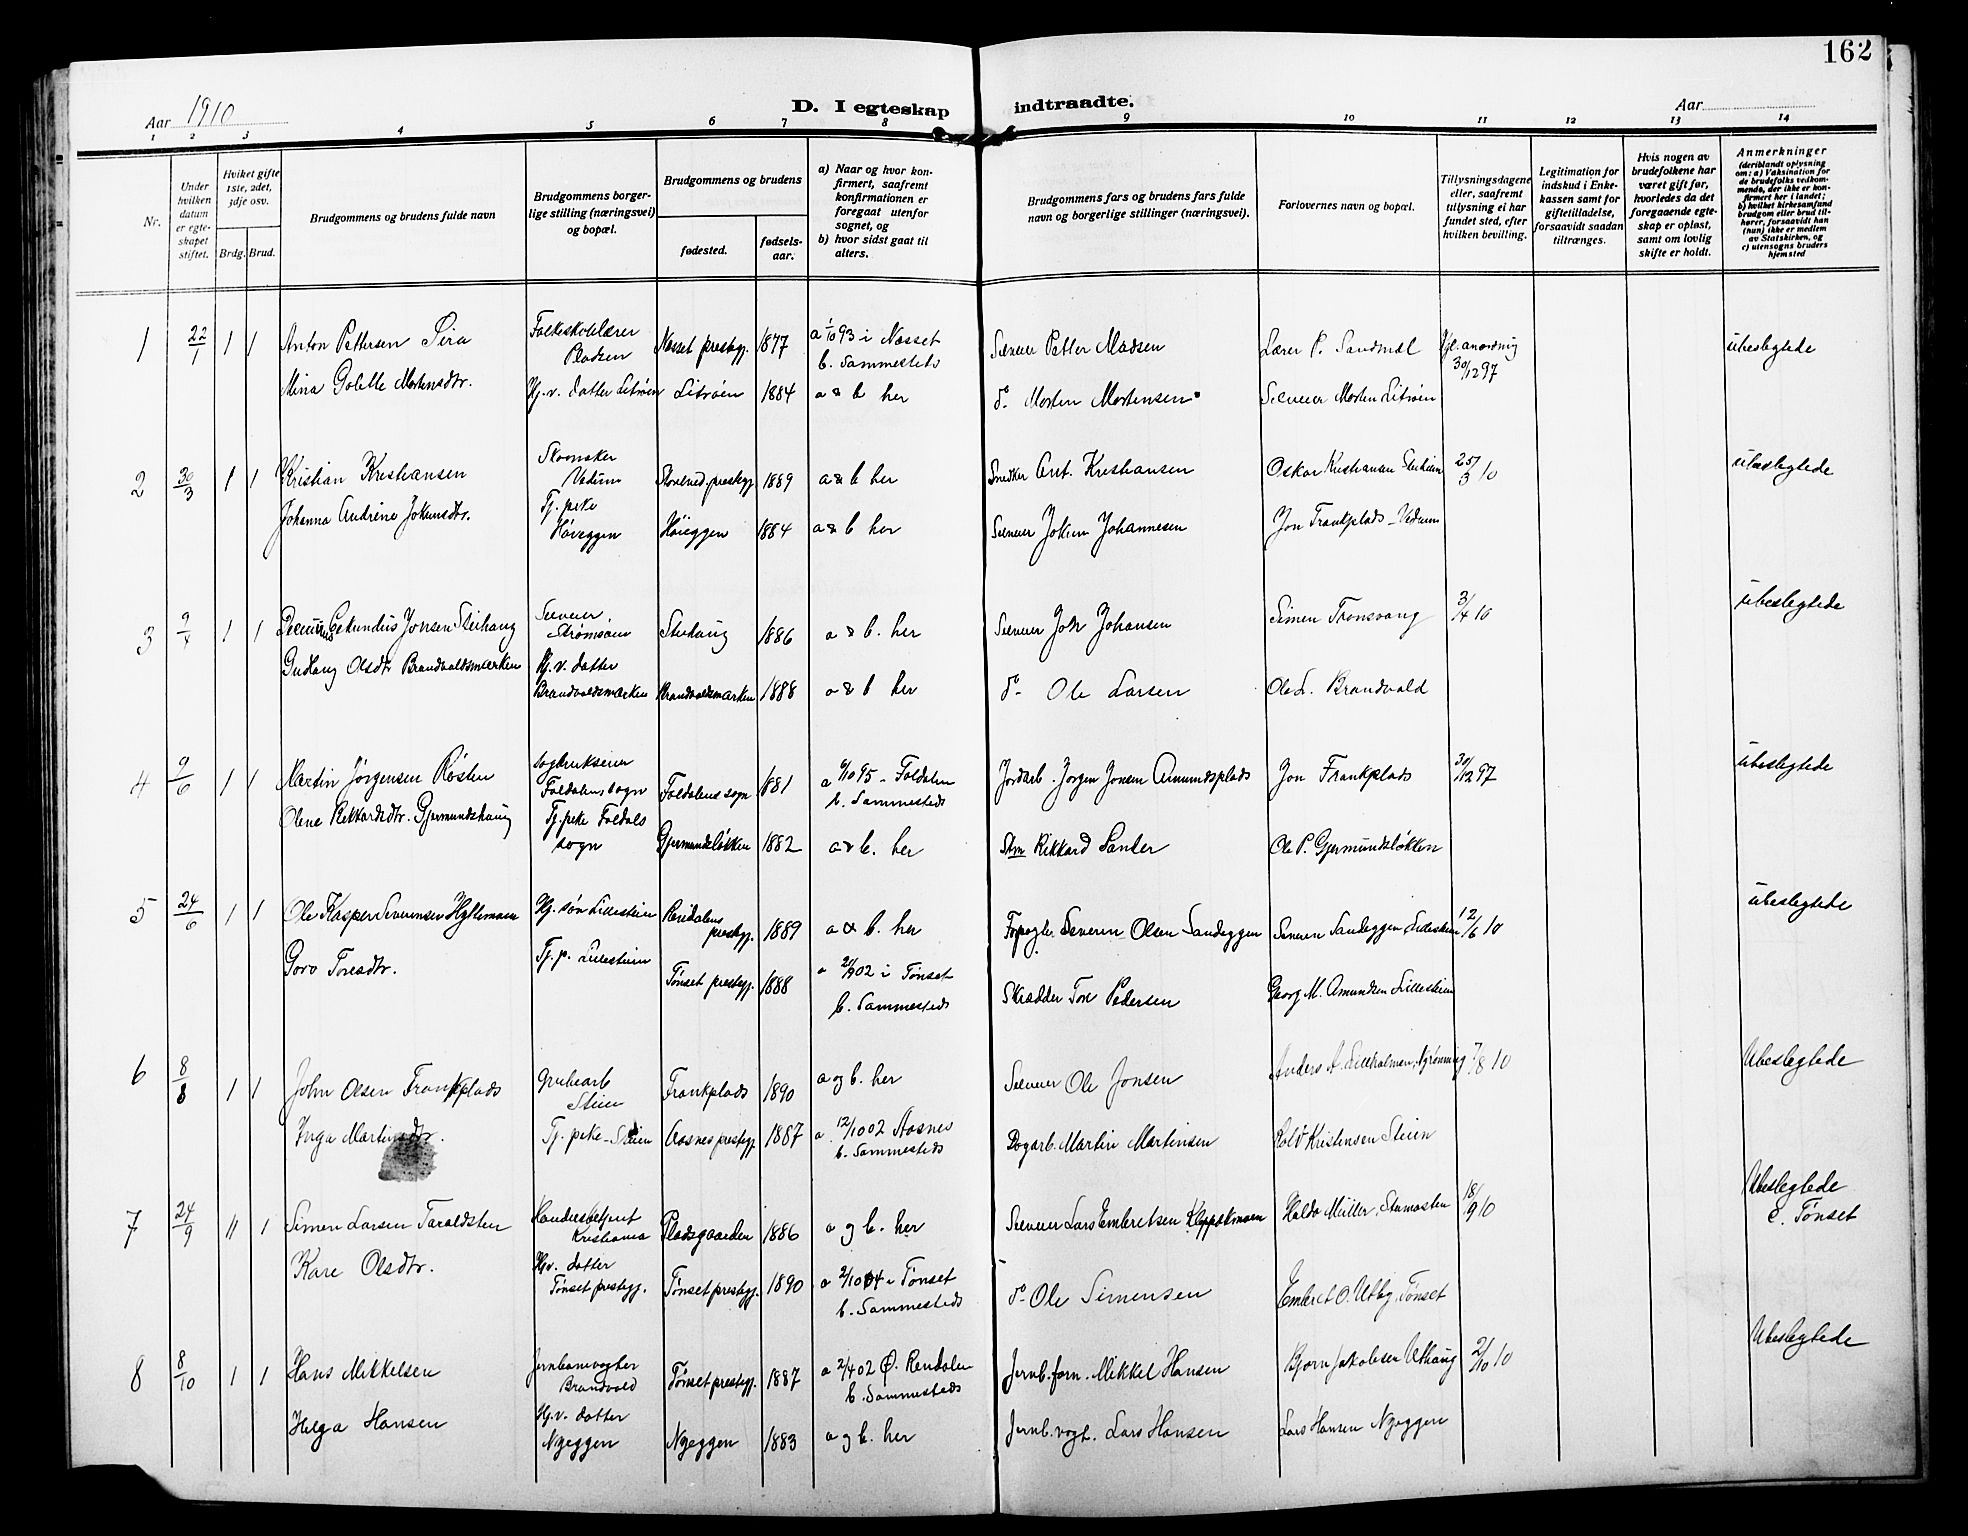 162
Aar 1910
D. I egteskap indtraadte.
Aar
1 2 3 4 5 6 7 8 9 10 11 12 13 14
Nr.
Under hvilken datum er egteskapet stiftet.
Hvilket gifte 1ste, 2det, 3dje osv.
Brdg. Brud.
Brudgommens og brudens fulde navn
Brudgommens borgerlige stilling (næringsvei) og bopæl.
Brudgommens og brudens
fødested.
fødselsaar.
a) Naar og hvor konfirmert, saafremt konfirmationen er foregaat utenfor sognet, og
b) hvor sidst gaat til alters.
Brudgommens fars og brudens fars fulde navn og borgerlige stillinger (næringsvei).
Forlovernes navn og bopæl.
Tillysningsdagene eller, saafremt tillysning ei har fundet sted, efter hvilken bevilling.
Legitimation for indskud i Enkekassen samt for giftetilladelse, forsaavidt saadan tiltrænges.
Hvis nogen av brudefolkene har været gift før, hvorledes da det foregaaende egteskap er opløst, samt om lovlig skifte er holdt.
Anmerkninger (deriblandt oplysning om: a) Vaksination for de brudefolks vedkommende, der ikke er konfirmert her i landet; b) hvilket kirkesamfund brudgom eller brud tilhører, forsaavidt han (hun) ikke er medlem av Statskirken, og c) utensogns bruders hjemsted
1 22/1 1 1 Anton Pettersen Sira Folkeskolelærer Nesset prestegj. 1877 a 1/10 93 i Nesset b. Sammesteds Selveier Petter Madsen Lærer P. Sandmæl Kgl. anordnig 30/12 97 ubeslegtede
Mina Golette Mortensdtr. Hj.v. datter Litrøen Litrøen 1884 a & b her do Morten Mortensen Selveier Morten Litrøen
2 30/3 1 1 Kristian Kristiansen Skomaker 1889 a & b her Snedker Ant. Kristiansen Oskar Kristiansen 25/3 10 ubeslegtede
Johanna Andrine Jokumsdtr. Tj. pike Høieggen Høieggen 1884 a & b her Selveier Jokum Johannesen Jon Trankplads
3 9/4 1 1 Sekundus Jonsen Steihaug Selveier Strømsøien Steihaug 1886 a & b. her Selveier Joh Johansen Simen Tronsvang 3/4 10 ubeslegtede
Gudlaug Olsdtr Brandvoldsmærken Hj.v. datter Brandvoldsmærken Brandvoldsmærken 1888 a & b her do Ole Larsen Ole L. Brandvold
4 9/6 1 1 Martin Jørgensen Røsten Foldalens sogn Foldalens sogn 1881 95 Foldalen b. Sammesteds Jordarb. Jørgen Jonsen Amundsplads Jon Frankplads 30/12 97 ubeslegtede
Oline Rikkardsdtr. Gjermundshaug Tj. pike Foldals sogn Gjermundsløkken 1882 a & b. her Rikkard Ole P. Gjermundsløkken
5 24/6 1 1 Ole Kasper Severinsen Hyllemoen Hj. søn Lillesteien Rendalens prestegj. 1889 a & b. her Severin Olsen Sandeggen Severin Sandeggen Lillesteien 12/6 10 ubeslegtede
Goro Toresdtr. Tj. p. Lillesteien Tønset prestegj. 1888 a 02 i Tønset b. Sammesteds Skrædder Tore Pedersen Georg M. Amundsen Lillesteien
6 8/8 1 1 John Olsen Frankplads Grubearb Steien Frankplads 1890 a og b. her Selveier Ole Jonsen Anders A. Lilleholmen, 7/8 10 Ubeslegtede
Inga Martinsdtr. Tj. pike Steien Aasnes prestegj. 1887 a. 12/10 02 Aasnes b. Sammesteds Dagarb. Martin Martinsen Kristensen Steien
7 24/9 11 1 Simen Larsen Taraldsten Handelsbetjent Kristiania Pladsgaarden 1886 a og b. her Selveier Lars Embretsen Kloppkmoen Haldo Müller, Stamosten 18/9 10 Ubeslegtede c. Tønset
Kare Olsdtr. Hj.v. datter Tønset prestegj. Tønset prestegj. 1890 a 2/10 04 i Tønset b. Sammesteds do Ole Simensen Embret O. Utby, Tønset
8 8/10 1 1 Hans Mikkelsen Jernbanevogter Brandvold Tønset prestegj. 1887 a 2/4 02 Ø. Rendalen b. Sammesteds Jernb.form. Mikkel Hansen Bjørn Jakobsen Uthaug 2/10 10 Ubeslegtede
Helga Hansen Hj.v. datter Nyeggen Nyeggen 1883 a og b. her Jernb.vogt. Lars Hansen Lars Hansen Nyeggen